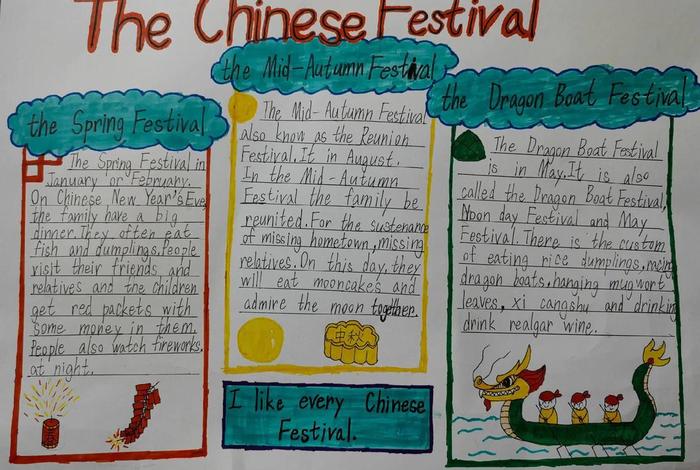 The Chinese Festival
the Spring Festival
The Spring Festival in
January or February.
On Chinese New Year's Eve,
the family have a big
dinner.They often eat
fish and dumplings.People
visit their friends and
relatives and the children
get red packets with
some money in them.
People also watch fireworks.
at night.
the Mid-Autumn Festival
The Mid-Autumn Festival
also know as the Reunion
Festival.It in August.
In the Mid-Autumn
Festival the family be
reunited.For the sustenance
of missing hometown,missing
relatives.On this day,they
will eat mooncakes and
admire the moon together.
中秋
I like every Chinese
Festival.
the Dragon Boat Festival
The Dragon Boat Festival
is in May.It is also
called the Dragon Boat Festival,
Noon day Festival and May
Festival.There is the custom
of eating rice dumplings,racing
dragon boats,hanging mugwort
leaves, xi cangshy and drinking
drink realgar wine.